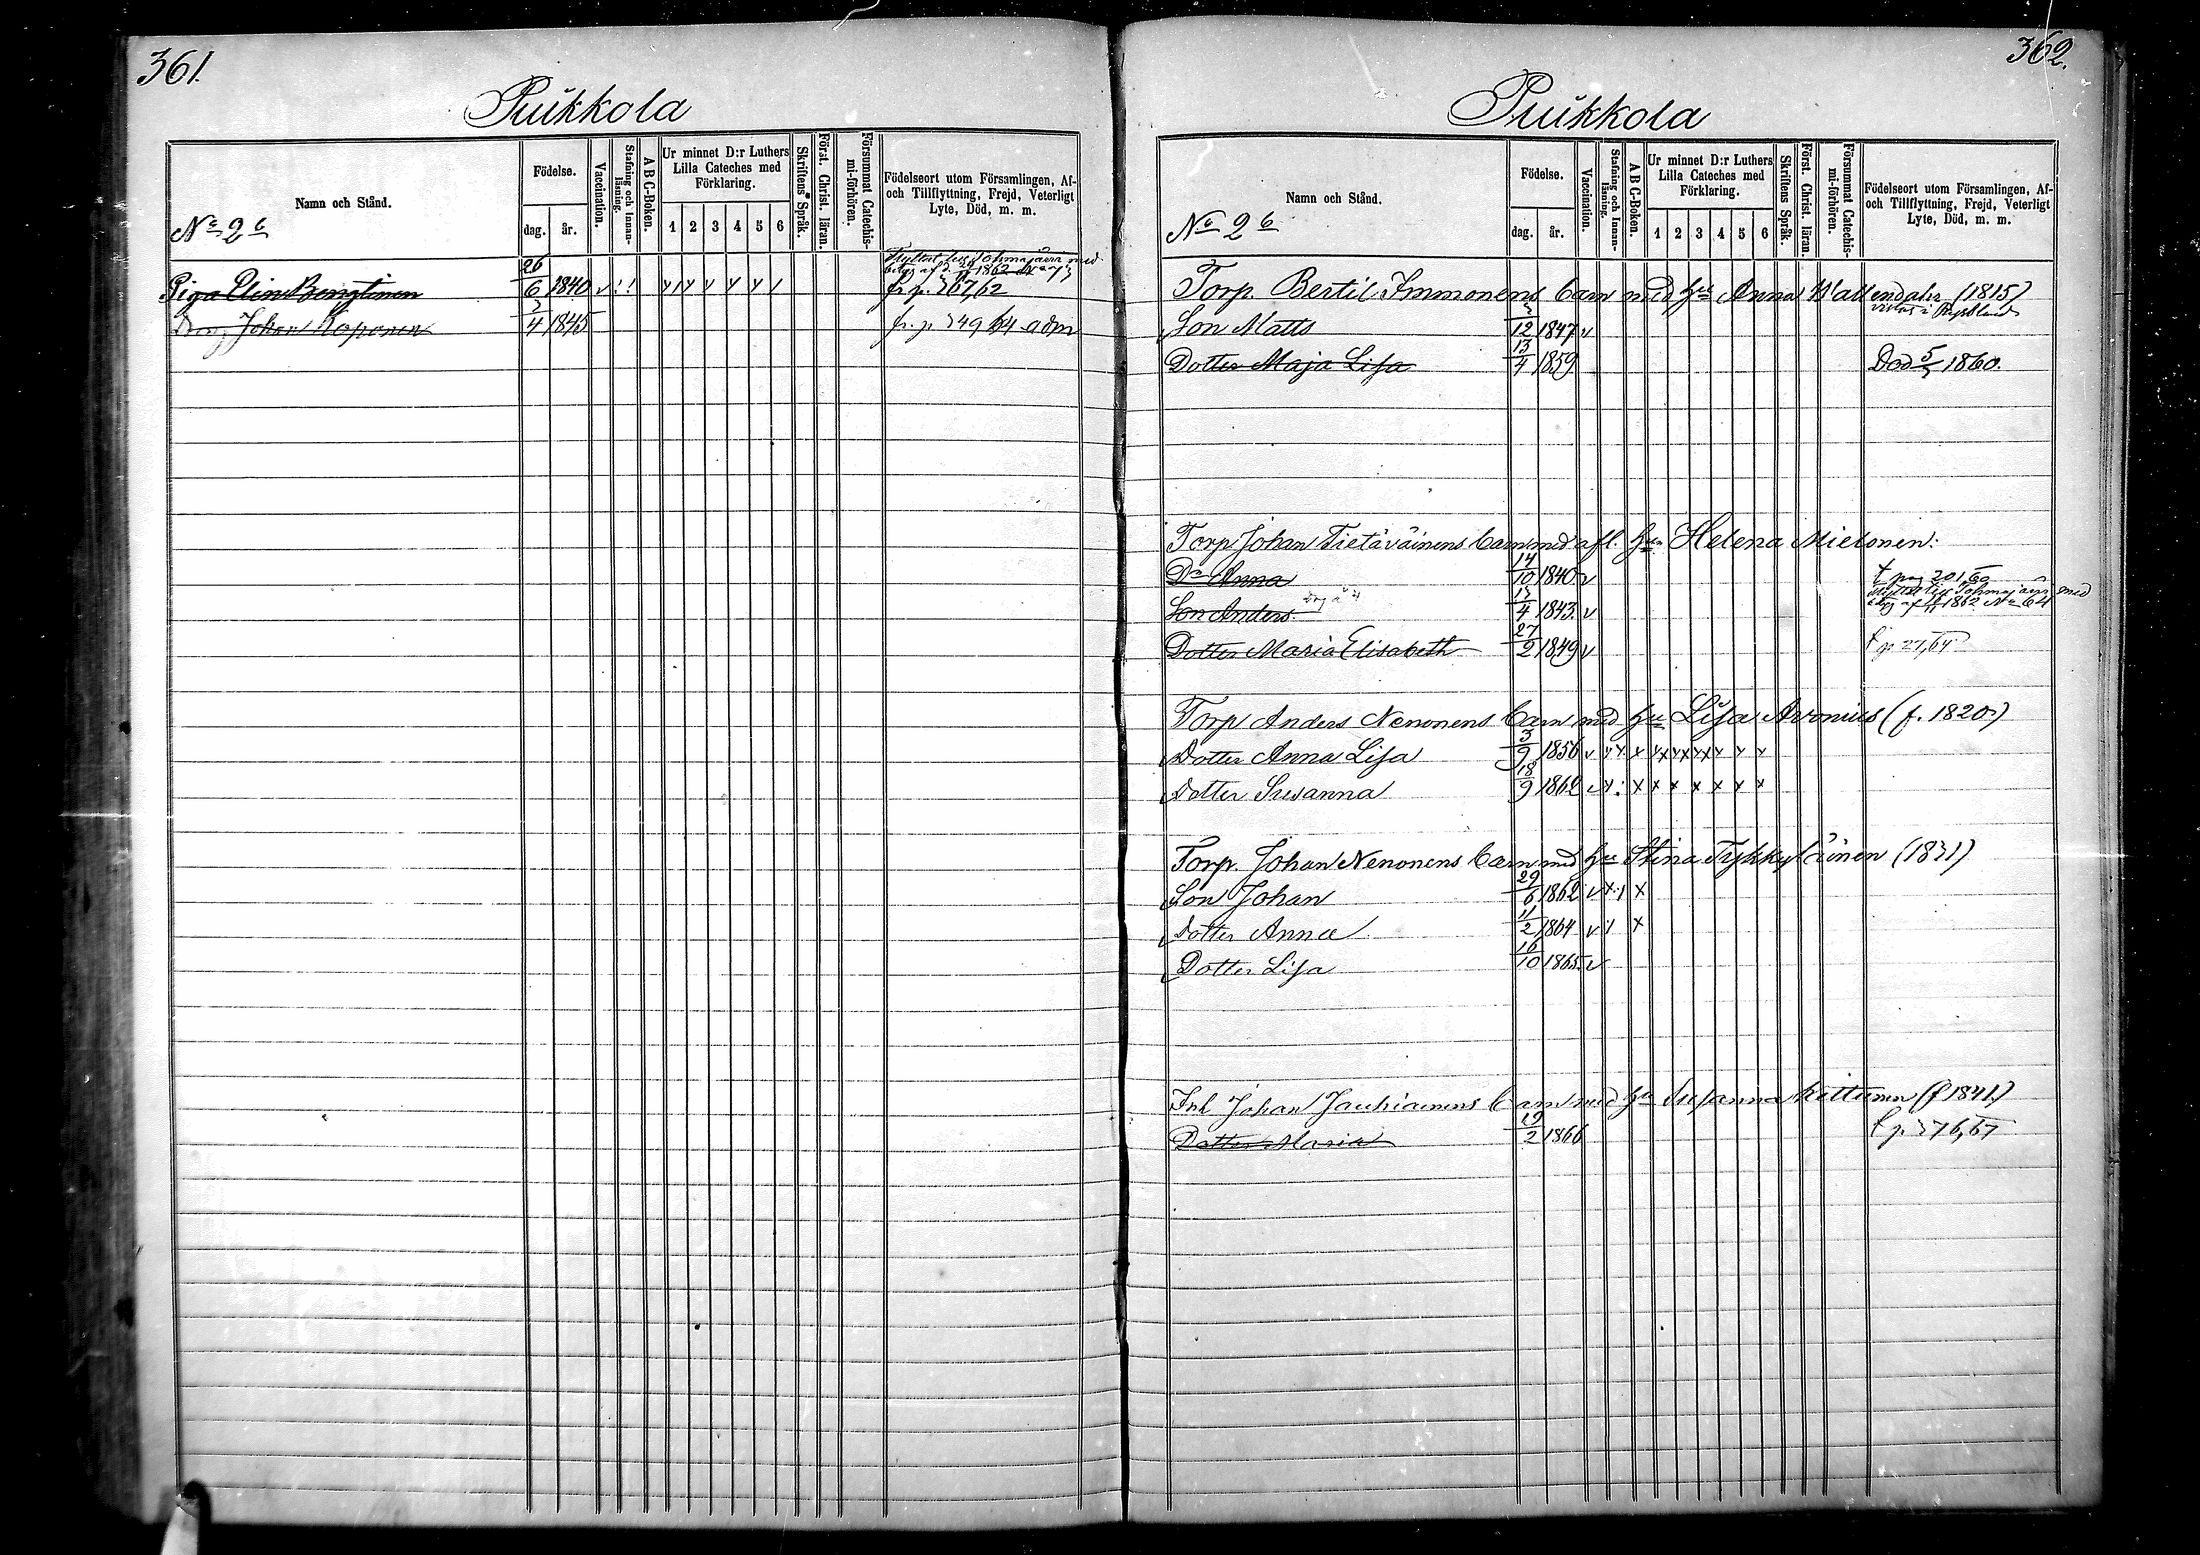 361.
Puikkola
Namn och Stånd.
Födelse.
dag. år.
Vaccination.
Stafning och Innanläsning.
A B C-Boken.
Ur minnet D:r Luthers Lilla Cateches med Förklaring.
1 2 3 4 5 6
Skriftens Språk.
Först. Christ. läran.
Försummat Catechismi-förhören.
Födelseort utom Församlingen, Af- och Tillflyttning, Frejd, Veterligt Lyte, Död, m. m.
No 2 b
Flyttat till Tohmajärvi med
betyg af 1862
Piga Elin Bengtinen 26/6 1840 fr. p. 367,62
Johan Koponen 2/4 1845 fr. p. 349 64 adm
362.
Puikkola
Namn och Stånd.
Födelse.
dag. år.
Vaccination.
Stafning och Innanläsning.
A B C-Boken.
Ur minnet D:r Luthers Lilla Cateches med Förklaring.
1 2 3 4 5 6
Skriftens Språk.
Först. Christ. läran.
Försummat Catechismi-förhören.
Födelseort utom Församlingen, Af- och Tillflyttning, Frejd, Veterligt Lyte, Död, m. m.
No 2 b
Torp. Bertil Immonens barn med hu Anna Wallendahr (1815)
Son Matts 12 1847 v vistas i Ryssland
Dotter Maja Lisa 13/4 1859 Död 5 1860.
Torp Johan Tietäväinens barn med afl. hu Helena Mielonen:
Dr Anna 14/10 1840 v t pag 201,60
Son Anders 13/4 1843. v flyttat till Tohmajärvi med
betyg af 1862 No 64
Dotter Maria Elisabeth 27/2 1849 v t p. 27,64
Torp Anders Nenonens barn med hu Lisa Avonius (f. 1820.)
Dotter Anna Lisa 3/9 1856 v
Dotter Susanna 18/9 1862 v x x x x x x x
Torp. Johan Nenonens barn med hu Stina Tykkyläinen (1831)
Son Johan 29/6 1862 v x x
Dotter Anna 11/2 1864 v x
Dotter Lisa 16/10 1865 v
Inh Johan Jauhiainens barn med hu Susanna Kettunen (f 1841.)
Dotter Maria 19/2 1866 t p. 376,67